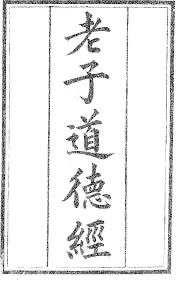 老子道德經